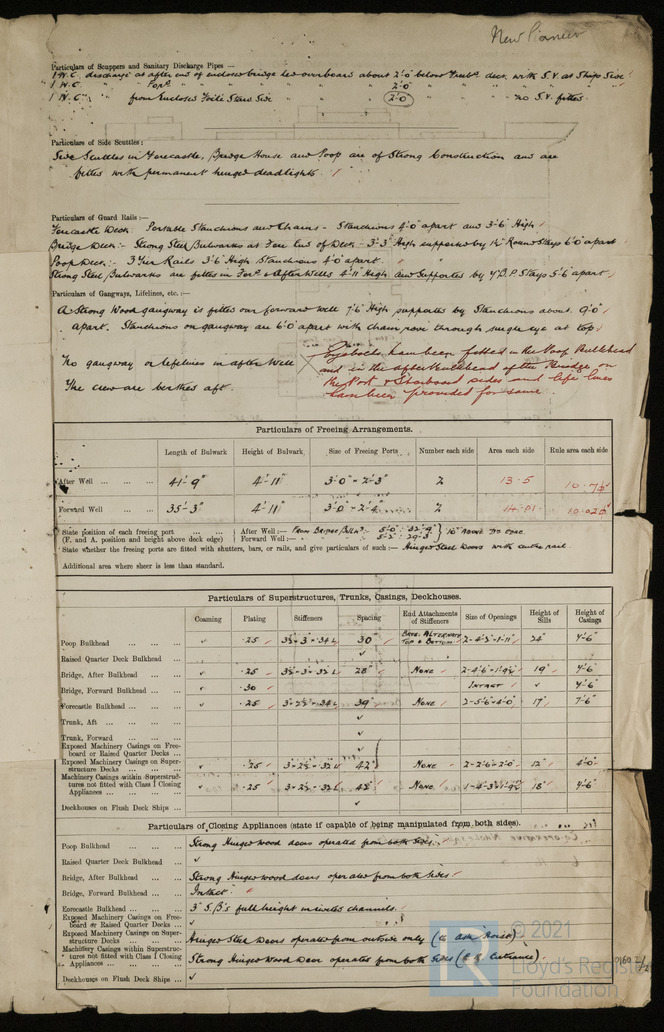 New Pioneer
Particulars of Scuppers and Sanitary Discharge Pipes —
1 W.C. discharge at after end of enclosed bridge led overboard about 2'.0" below Freebd. deck with S.V. at Ships Side
1 W.C. " Ford. " " " " " 2'.0" " " " "
1 W.C. " from Enclosed Side " " 2'.0" " " no S.V. fitted.
Particulars of Side Scuttles :—
Side Scuttles in Forecastle, Bridge House and Poop are of Strong Construction and are
fitted with permanent hinged deadlights.
Particulars of Guard Rails :—
Forecastle Deck: Portable Stanchions and Chains - Stanchions 4'.0 apart and 3'.6" High
Bridge Deck:- Strong Steel Bulwarks at Fore End of Deck - 3'.3" High supported by 1½" Round Stays 6'.0 apart
Poop Deck:- 3 Tier Rails 3'.6 High Stanchions 4'.0 apart.
Strong Steel Bulwarks are fitted in Ford. & After Wells 4'.11" High and Supported by 7" B.P. Stays 5'.6 apart
Particulars of Gangways, Lifelines, etc. :—
A Strong Wood gangway is fitted over forward well 7'.6 High supported by Stanchions about 9'.0"
apart. Stanchions on gangway are 6'.0 apart with chain rove through single eye at top.
No gangway or lifelines in after Well
The crew are berthed aft.
Eyebolts have been fitted in the Poop Bulkhead
and in the after bulkhead of the Bridge on
the Port & Starboard sides and life lines
have been provided for same.
Particulars of Freeing Arrangements.
Length of Bulwark Height of Bulwark Size of Freeing Ports Number each side Area each side Rule area each side
After Well ... ... ... 41'-9" 4'-11" 3'.0" × 2'.3" 2 13.5 10.7
Forward Well ... ... 35'-3" 4'-11" 3'.0" × 2'.4" 2 14.01 10.02
State position of each freeing port ... ... ... After Well :— From Bridge Bulkd. 5'.0" : 32'.9"
(F. and A. position and height above deck edge) Forward Well :— " " 5'.2" : 29'.3" 10" above Dk edge
State whether the freeing ports are fitted with shutters, bars, or rails, and give particulars of such :— Hinged Steel Doors with centre rail.
Additional area where sheer is less than standard.
Particulars of Superstructures, Trunks, Casings, Deckhouses.
Coaming Plating Stiffeners Spacing End Attachments of Stiffeners Size of Openings Height of Sills Height of Casings
Poop Bulkhead ... ... ... ✓ .25 3½ × 3 × .34 L 30" Brac. Alternate Top & Bottom 2 - 4'.3 × 1'.11" 24" 7'.6"
Raised Quarter Deck Bulkhead ... ✓
Bridge, After Bulkhead ... ... ✓ .25 3½ × 3 × .32 L 28" None 2 - 4'.6 × 1'.9½ 19" 7'.6"
Bridge, Forward Bulkhead ... ... ✓ .30 Intact ✓ 7'.6"
Forecastle Bulkhead ... ... ... ✓ .25 3 × 2½ × .34 L 39" None 2 - 5'.6 × 4'.0 17" 7'.6"
Trunk, Aft ... ... ... ... ✓
Trunk, Forward ... ... ... ✓
Exposed Machinery Casings on Freeboard or Raised Quarter Decks ... ✓
Exposed Machinery Casings on Superstructure Decks ... ... ... ✓ .25 3 × 2½ × .32 L 42" None 2 - 2'.6 × 2'.0 12" 4'.0"
Machinery Casings within Superstructures not fitted with Class I Closing Appliances ... ... ... ... ✓ .25 3 × 2½ × .32 L 42" None 1 - 4'.3 × 1'.9½ 18" 7'.6"
Deckhouses on Flush Deck Ships ... ✓
Particulars of Closing Appliances (state if capable of being manipulated from both sides).
Poop Bulkhead ... ... ... Strong Hinged wood doors operated from both sides.
Raised Quarter Deck Bulkhead ... ✓
Bridge, After Bulkhead ... ... Strong Hinged wood doors operated from both sides
Bridge, Forward Bulkhead ... ... Intact.
Forecastle Bulkhead ... ... ... 3" S.B's full height in riveted channels.
Exposed Machinery Casings on Freeboard or Raised Quarter Decks ... ✓
Exposed Machinery Casings on Superstructure Decks ... ... ... Hinged Steel Doors operated from outside only (to ash hoist)
Machinery Casings within Superstructures not fitted with Class I Closing Appliances ... ... ... ... Strong Hinged Wood Door operated from both Sides (E.R. Entrance).
Deckhouses on Flush Deck Ships ... ✓
© 2021
Lloyd's Register
Foundation